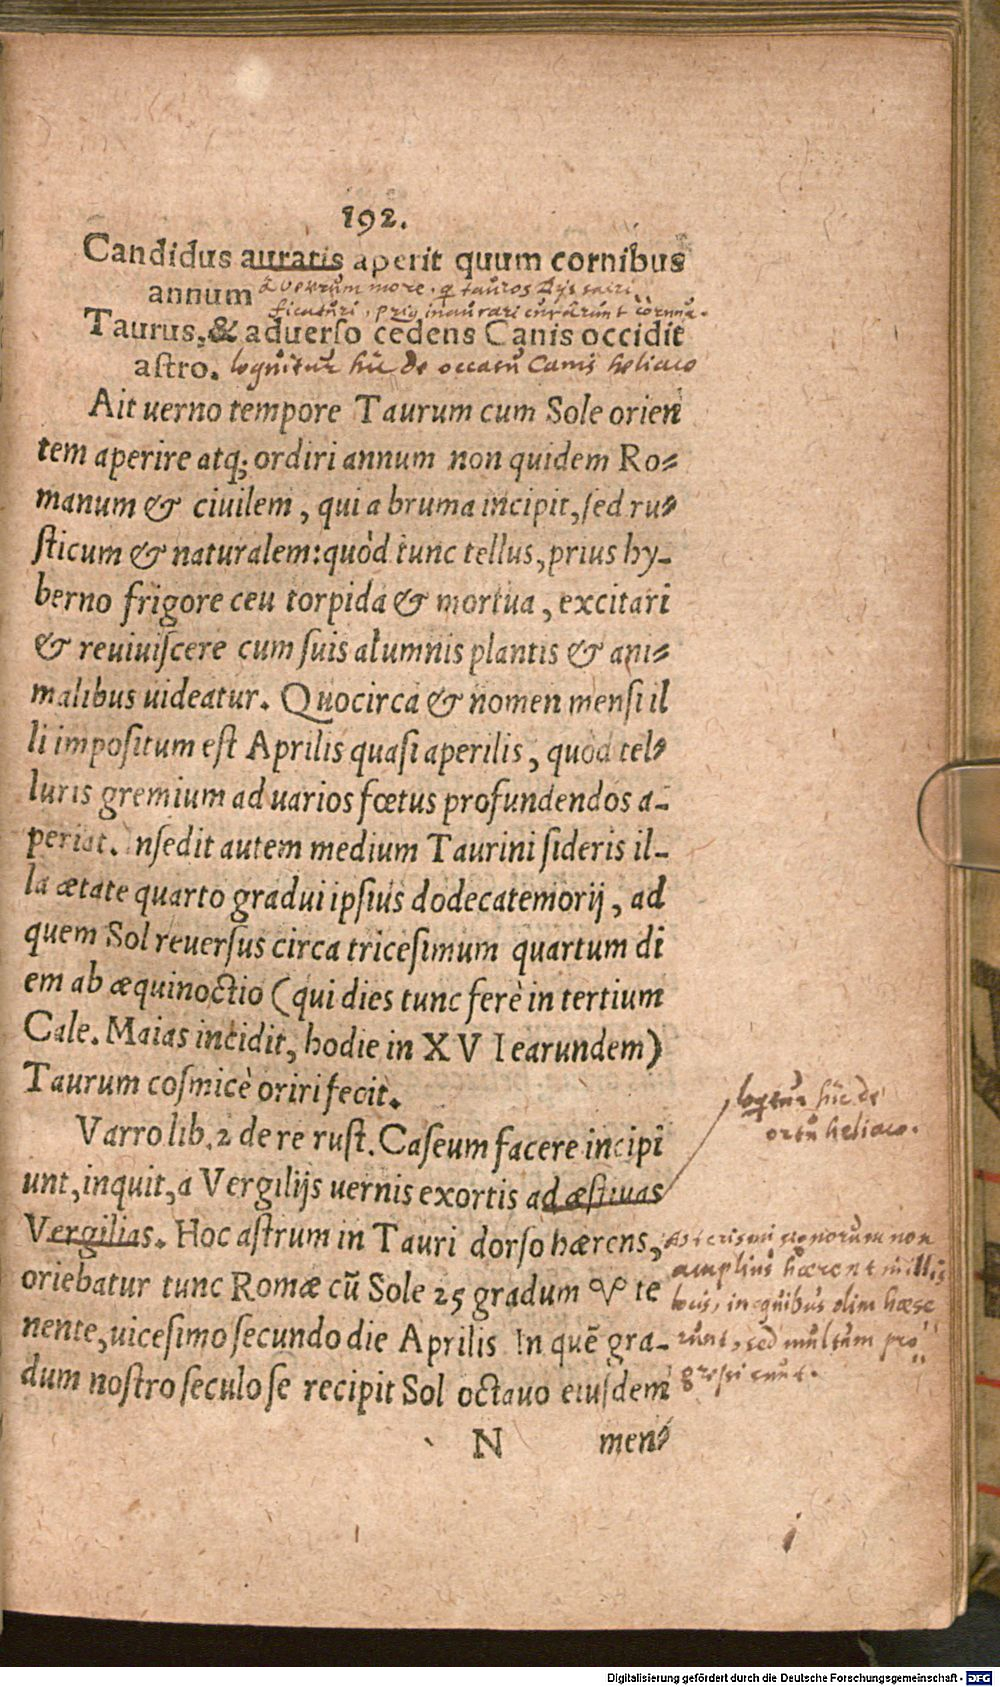 192.
Candidus auratis aperit quum cornibus
annum
more. q tauros dijs sacri
ficaturi, prius inaurari curarunt cornua.
Taurus, & aduerso cedens Canis occidit
astro. loquitur hic de occasu Canis heliaco
Ait uerno tempore Taurum cum Sole orien
tem aperire atq; ordiri annum non quidem Ro-
manum & ciuilem, qui a bruma incipit, sed ru-
sticum & naturalem: quòd tunc tellus, prius hy-
berno frigore ceu torpida & mortua, excitari
& reuiuiscere cum suis alumnis plantis & ani-
malibus uideatur. Quocirca & nomen mensi il
li impositum est Aprilis quasi aperilis, quòd tel-
luris gremium ad uarios fœtus profundendos a-
periat. Insedit autem medium Taurini sideris il-
la ætate quarto gradui ipsius dodecatemorij, ad
quem Sol reuersus circa tricesimum quartum di
em ab æquinoctio (qui dies tunc ferè in tertium
Cale. Maias incidit, hodie in XVI earundem)
Taurum cosmicè oriri fecit.
Varro lib. 2 de re rust. Caseum facere incipi
unt, inquit, a Vergilijs uernis exortis ad æstiuas
loqtur hic de
ortu heliaco.
Vergilias. Hoc astrum in Tauri dorso hærens,
oriebatur tunc Romæ cũ Sole 25 gradum ♈ te
nente, uicesimo secundo die Aprilis In quẽ gra-
dum nostro seculo se recipit Sol octauo eiusdem
Asterismi signorum non
amplius hærent in illis
locis, in quibus olim hæse
runt, sed multum pro
gressi sunt.
N men-
Digitalisierung gefördert durch die Deutsche Forschungsgemeinschaft - DFG